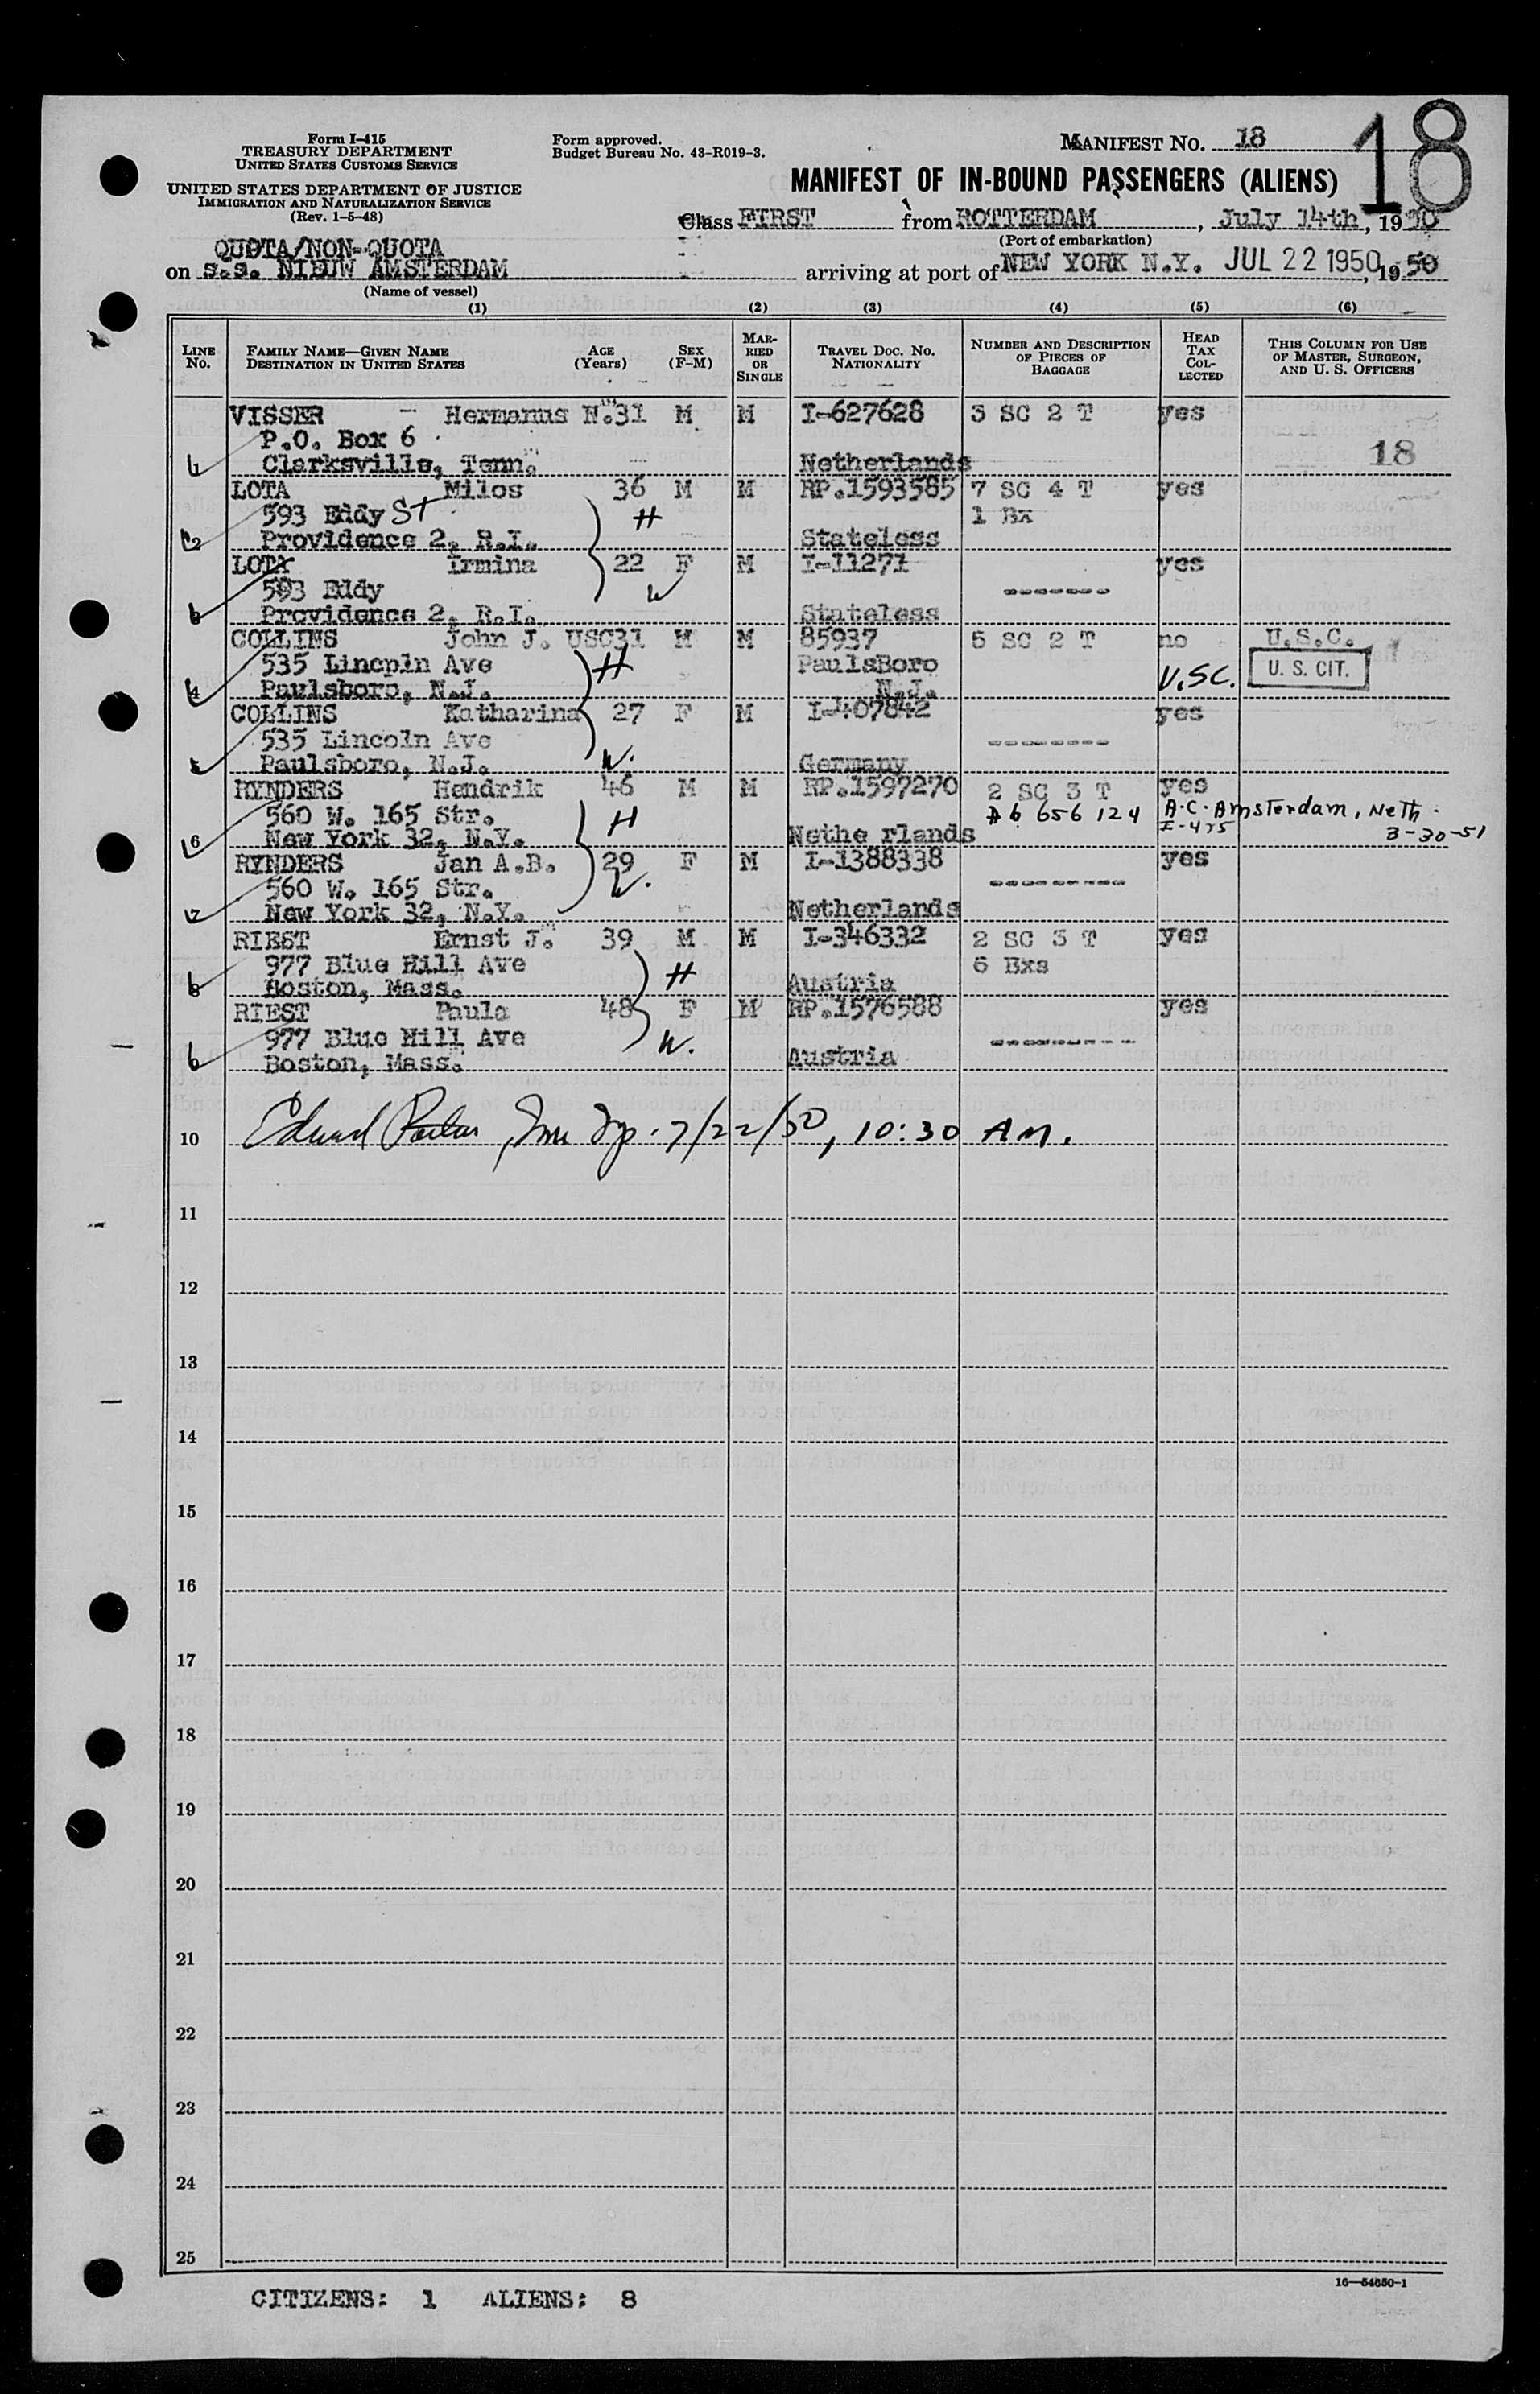 Form I-415
TREASURY DEPARTMENT
UNITED STATES CUSTOMS SERVICE
UNITED STATES DEPARTMENT OF JUSTICE
IMMIGRATION AND NATURALIZATION SERVICE
(Rev. 1-5-48)
Form approved.
Budget Bureau No. 43-R019-3.
MANIFEST NO. 18
18
MANIFEST OF IN-BOUND PASSENGERS (ALIENS)
Class FIRST from ROTTERDAM, July 14th, 1950
(Port of embarkation)
QUOTA/NON-QUOTA
on s.s. NIEUW AMSTERDAM arriving at port of NEW YORK N.Y. JUL 22 1950, 1950
(Name of vessel)
(1) (2) (3) (4) (5) (6)
LINE NO. FAMILY NAME—GIVEN NAME DESTINATION IN UNITED STATES AGE (Years) SEX (F-M) MARRIED OR SINGLE TRAVEL DOC. NO. NATIONALITY NUMBER AND DESCRIPTION OF PIECES OF BAGGAGE HEAD TAX COLLECTED THIS COLUMN FOR USE OF MASTER, SURGEON, AND U. S. OFFICERS
VISSER - Hermanus N. 31 M M I-627628 3 SC 2 T yes
P.O. Box 6
1 Clarksville, Tenn. Netherlands 18
LOTA Milos 36 M M RP.1593585 7 SC 4 T yes
593 Eddy St H 1 Bx
2 Providence 2, R.I. Stateless
LOTA Irmina 22 F M I-11271 yes
593 Eddy W -------
3 Providence 2, R.I. Stateless
COLLINS John J. USC 31 M M 85937 5 SC 2 T no U.S.C.
535 Lincoln Ave H PaulsBoro
4 Paulsboro, N.J. N.J. U.S.C. U. S. CIT.
COLLINS Katharina 27 F M I-407842 yes
535 Lincoln Ave --------
5 Paulsboro, N.J. W. Germany
RYNDERS Hendrik 46 M M RP.1597270 2 SC 3 T yes
560 W. 165 Str. H A6 656 124 A.C. Amsterdam, Neth.
6 New York 32, N.Y. Nethe rlands I-475 3-30-51
RYNDERS Jan A.B. 29 F M I-1388338 yes
560 W. 165 Str. W. ---------
7 New York 32, N.Y. Netherlands
RIEST Ernst J. 39 M M I-346332 2 SC 3 T yes
977 Blue Hill Ave H 6 Bxs
8 Boston, Mass. Austria
RIEST Paula 48 F M RP.1576588 yes
977 Blue Hill Ave W. ---------
Boston, Mass. Austria
10 Edward 7/22/50, 10:30 AM.
11
12
13
14
15
16
17
18
19
20
21
22
23
24
25
16—54650-1
CITIZENS: 1 ALIENS: 8